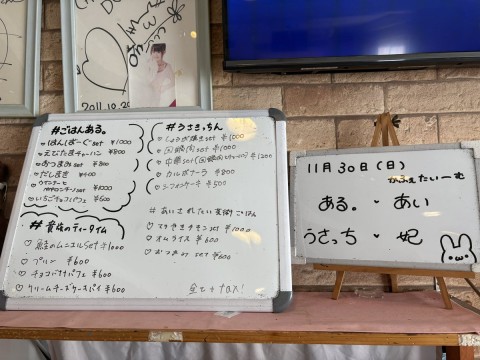 2011.10.20
#ごはんある。
♡はんばーぐset ¥1000
♡えびたまチャーハン ¥800
♡おつまみset ¥800
♡だし巻き ¥400
♡ウインナーとset ¥1000
♡いちごチョコパフェ ¥600
#貴族のティータイム
♡のムニエルset ¥1000
♡プリン ¥600
♡チョコバナナパフェ ¥600
♡クリームチーズケースパイ ¥600
#うさきっちん
♡しょうが焼きset ¥1000
♡回鍋肉set ¥1000
♡中華set(回鍋肉) ¥1200
♡カルボナーラ ¥800
♡シーフォンケーキ ¥500
#あいされたい美術ごはん
♡すきやきチキンset ¥1000
♡オムライス ¥600
♡おつまみset ¥600
11月30日(日)
かふぇたいーむ
ある。♡あい
うさっち♡妃